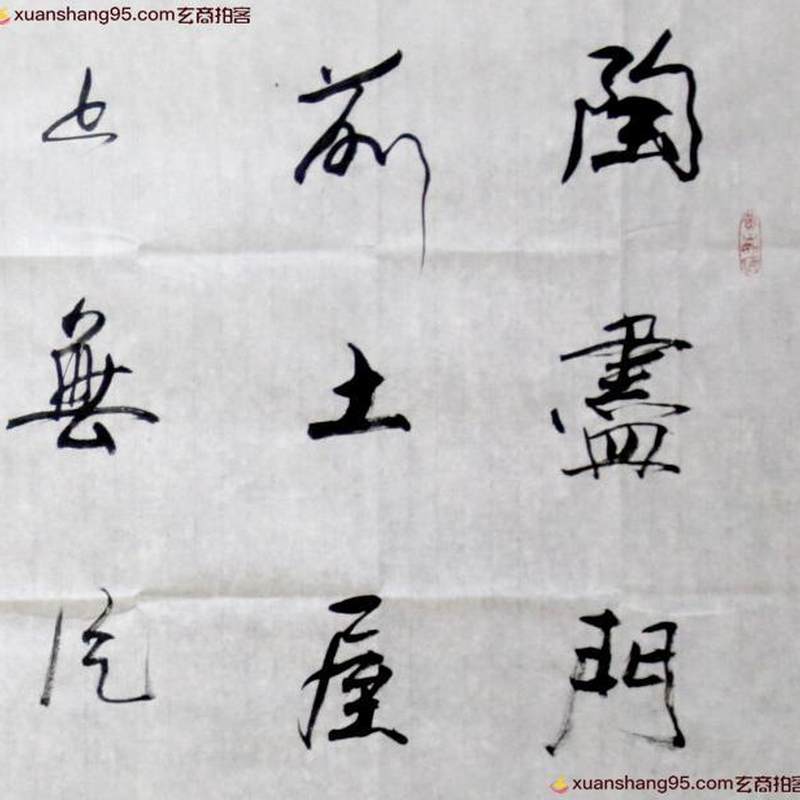 xuanshang95.com玄商拍客
陶盡門
前土屋
上無片
xuanshang95.com玄商拍客